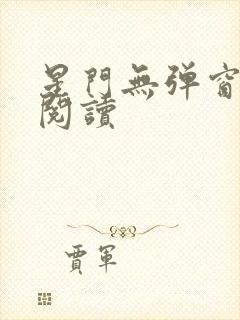 星門無弹窗
閱讀
賈軍